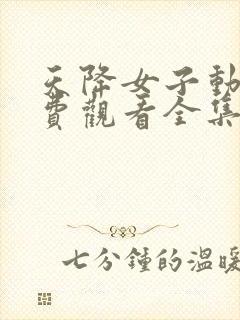 天降女子動
費觀看全集
七分鍾的溫暖